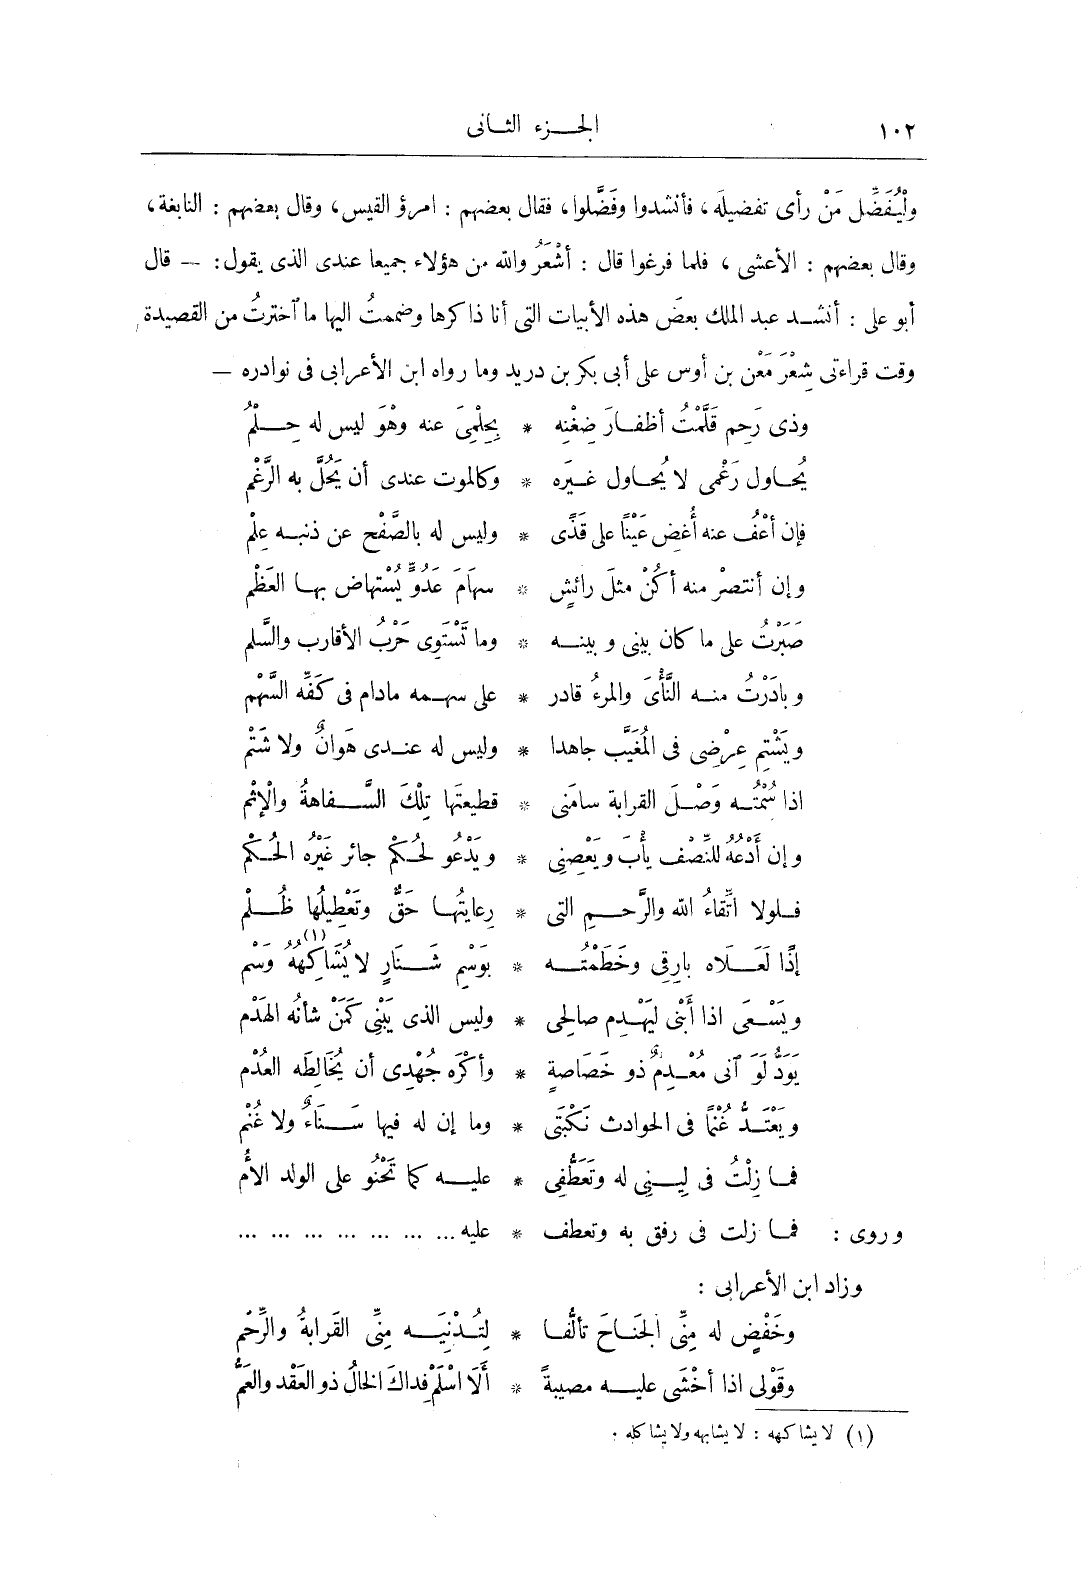 ١٠٢ الجزء الثانى
ولْيُفَضِّل مَنْ رأى تفضيلَه، فأنشدوا وفَضَّلوا، فقال بعضهم : امرؤ القيس، وقال بعضهم : النابغة،
وقال بعضهم : الأعشى، فلما فرغوا قال : أشْعَرُ والله من هؤلاء جميعا عندى الذى يقول: — قال
أبو على : أنشد عبد الملك بعضَ هذه الأبيات التى أنا ذاكرها وضممتُ اليها ما ٱخترتُ من القصيدة
وقت قراءتى شِعْرَ مَعْن بن أوس على أبى بكر بن دريد وما رواه ابن الأعرابى فى نوادره —
وذى رَحِم قَلَّمْتُ أظفارَ ضِغْنِه * بِحِلْمِىَ عنه وهْوَ ليس له حِلْمُ
يُحاول رَغْمى لا يُحاول غيَره * وكالموت عندى أن يَحُلَّ به الرَّغْم
فإن أعْفُ عنه أُغضِ عَيْنًا على قَذًى * وليس له بالصَّفْح عن ذنبه عِلْم
وإن أنتصرْ منه أكُنْ مثلَ رائشٍ * سهامَ عَدُوٍّ يُسْتهاض بها العَظْم
صَبَرْتُ على ما كان بينى وبينه * وما تَسْتَوِى حَرْبُ الأقارب والسَّلم
وبادَرْتُ منه النَّأْىَ والمرءُ قادر * على سهمه مادام فى كَفِّه السَّهْم
ويَشْتِم عِرْضِى فى المُغَيَّب جاهدا * وليس له عندى هَوانٌ ولا شَتْم
اذا سُمْتُه وَصْلَ القرابة سامَنى * قطيعتَها تِلْكَ السَّفاهةُ والْإثْم
وإن أَدْعُهُ للنِّصْف يأْبَ ويَعْصِنِى * ويَدْعُو لحُكْم جائر غَيْرُه الحُكْم
فلولا اتِّقاءُ الله والرَّحِمِ التى * رِعايتُها حَقٌّ وتَعْطِيلُها ظُلْم
إذًا لَعَلَاه بارِقِى وخَطَمْتُه * بوَسْمِ شَنَارٍ لا يُشَاكِهُهُ (١) وَسْم
ويَسْعَى اذا أَبْنى ليَهْدِم صالحِى * وليس الذى يَبْنِى كَمَنْ شأنُه الهَدْم
يَوَدُّ لَوَ ٱنى مُعْدِمٌ ذو خَصَاصةٍ * وأكْرَه جُهْدِى أن يُخَالِطَه العُدْم
ويَعْتَدُّ غُنْمًا فى الحوادث نَكْبَتى * وما إن له فيها سَنَاءٌ ولا غُنْم
فما زِلْتُ فى لِينِى له وتَعَطُّفِى * عليه كما تَحْنُو على الولد الأُم
وروى : فما زلت فى رفق به وتعطف * عليه ... ... ... ... ... ... ...
وزاد ابن الأعرابى :
وخَفْضٍ له مِنِّى الجَنَاحَ تألُّفا * لِتُدْنِيَه مِنِّى القَرابةُ والرِّحْم
وقَوْلِى اذا أخْشَى عليه مصيبةً * أَلَا اسْلَمْ فِداكَ الخالُ ذو العَقْد والعَمُّ
(١) لا يشاكهه : لا يشابهه ولا يشاكله .